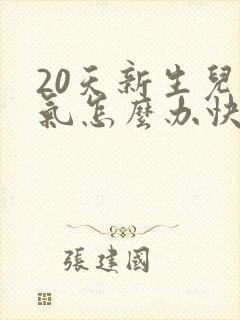 20天新生兒
氣怎麼办快
張建國